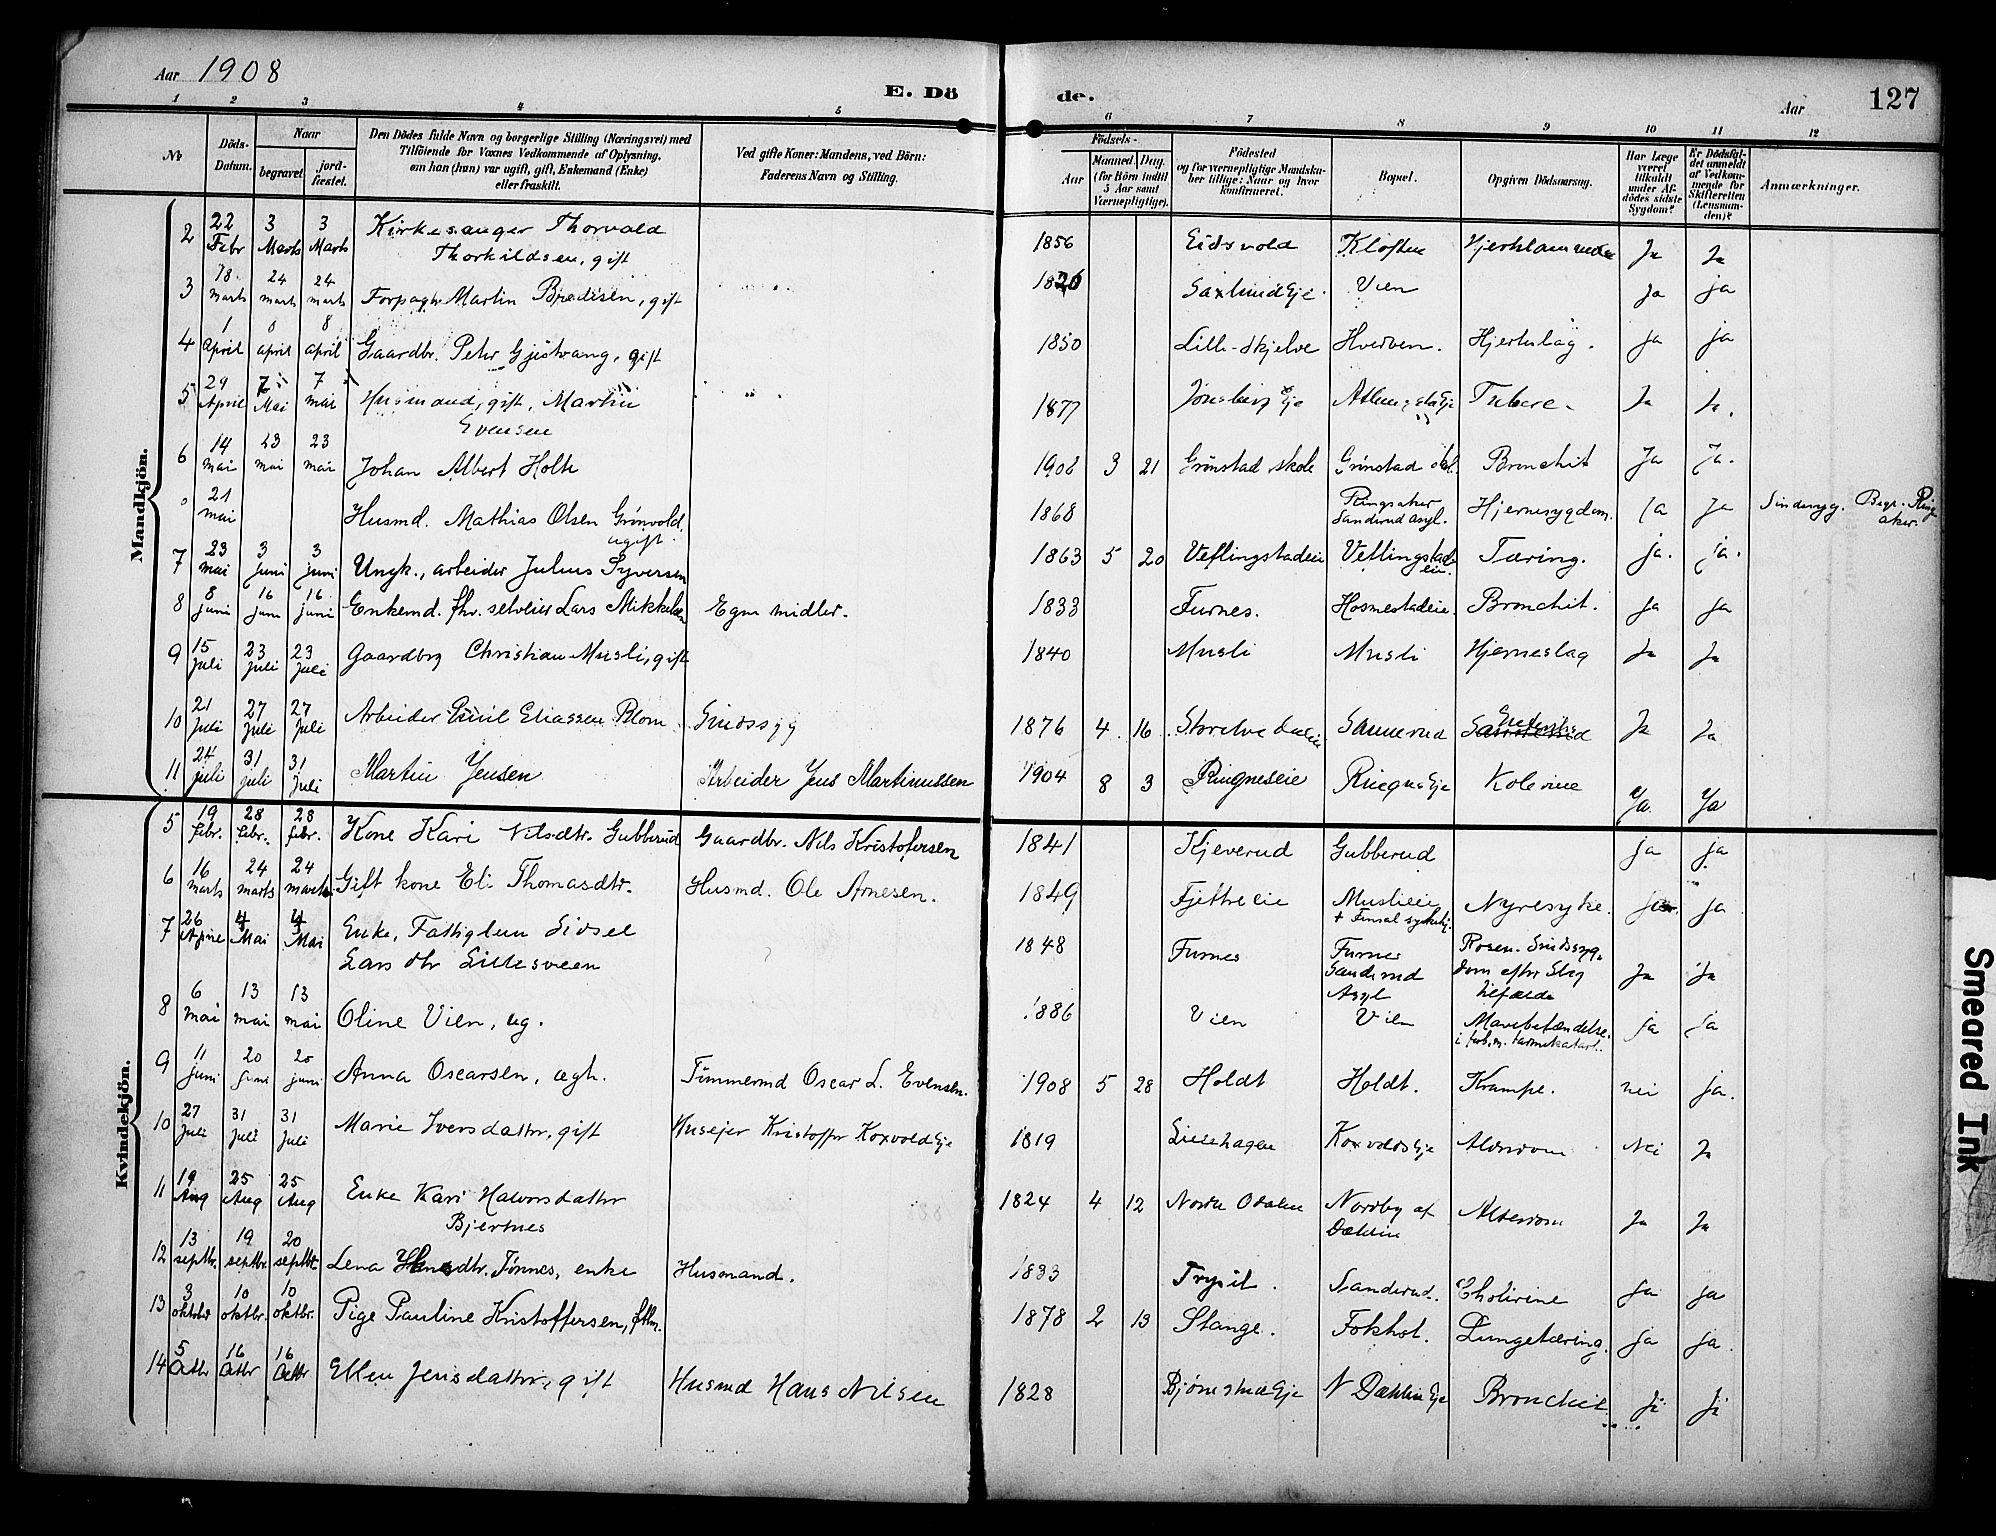 Aar 1908
E. Döde.
Aar
127
1 2 3 4 5 6 7 8 9 10 11 12
No
Döds-Datum.
Naar
begravet.
jordfæstet.
Den Dödes fulde Navn og borgerlige Stilling (Næringsvei) med
Tilföiende for Voxnes Vedkommende af Oplysning,
om han (hun) var ugift, gift, Enkemand (Enke)
eller fraskilt.
Ved gifte Koner: Mandens, ved Börn:
Faderens Navn og Stilling.
Födsels-
Aar
Maaned. Dag.
(for Börn indtil
5 Aar samt
Værnepligtige).
Födested
og for værnepligtige Mandska-
ber tillige: Naar og hvor
konfirmeret.
Bopæl.
Opgiven Dödsaarsag.
Har Læge
været
tilkaldt
under Af-
dödes sidste
Sygdom?
Er Dödsfal-
det anmeldt
af Vedkom-
mende for
Skifteretten
(Lensman-
den)?
Anmærkninger.
Mandkjön.
2 22 Febr 3 Marts 3 Marts Kirkesanger Thorvald Thorkildsen, gift 1856 Eidsvold Kloften Ja Ja
3 18 marts 24 marts 24 marts Forpagtr Martin Bredesen, gift 1826 Saxlund Eje. Vien Ja ja
4 1 April 8 april 8 april Gaardbr. Peter Gjestvang, gift 1850 Lille-Skjelve Hverven. Hjerteslag. Ja ja
5 29 April 7 Mai 7 mai Husmand, gift, Martin Evensen 1877 Jønsberg Eje Tuberc. Ja Ja.
6 14 mai 23 mai 23 mai Johan Albert Holte 1908 3 21 Grinstad skole Grinstad skol. Bronchit Ja Ja.
0 21 mai Husmd. Mathias Olsen Grinvold. ugift. 1868 Ringsaker Sanderud Asyl. Hjernesygdom. Ja Ja Sindssyg. Begr. Ringsaker.
7 23 mai 3 juni 3 juni Ungk., arbeider Julius Syversen 1863 5 20 Veflingstadeie Veflingstadeie. Tæring. ja. ja.
8 8 juni 16 juni 16 juni Enkemd. fhv. selveier Lars Mikkelsen Egne midler. 1833 Furnes. Hosmestadeie. Bronchit. Ja ja
9 15 juli 23 juli 23 juli Gaardbrg Christian Musli, gift 1840 Musli Musli Hjerneslag Ja Ja
10 21 juli 27 juli 27 juli Arbeider Emil Eliassen Blom Sindssyg 1876 4 16 Sannerud Sannerud Ja Ja
11 24 juli 31 juli 31 Juli Martin Jensen Arbeider Jens Martinussen 1904 8 3 Ringneseie Ringnes Eje Kolerine Ja Ja
Kvindekjön.
5 19 febr. 28 febr. 28 febr. Kone Kari Nilsdtr. Gubberud Gaardbr. Nils Kristofersen 1841 Kjeverud Gubberud ja ja
6 16 marts 24 marts 24 marts Gift kone Eli Thomasdtr. Husmd. Ole Arnesen. 1849 Fjetreeie Muslieie Nyresyke. ja
7 26 April 4 Mai 4 Mai Enke, Fattiglem Sidsel Larsdtr Lillesveen 1848 Furnes Furnes Sanderud Asyl Rosen. Sindssygdom efter Slag tilfælde Ja Ja
8 6 mai 13 mai 13 mai Oline Vien, ug. 1886 Vien Vien Mavebetændelse. ja ja
9 11 juni 20 juni 20 juni Anna Oscarsen, ægh. Tømmermd Oscar L. Evensen. 1908 5 28 Holdt Holdt. Krampe. nei ja.
10 27 Juli 31 juli 31 juli Marie Iversdatter, gift Husejer Kristoffer Koxvold Eje 1819 Liesehagen Koxvolds Eje Alderdom Nei Ja
11 19 Aug 25 Aug 25 Aug Enke Kari Halvorsdatter Bjertnes 1824 4 12 Nordre Odalen Nordby af Dæhlin Alderdom Ja Ja
12 13 septbr. 19 septbr. 20 septbr. Lena Hansdtr. Tønnes, enke Husmand. 1833 Trysil. Sanderud. Cholerine Ja ja
13 3 oktober 10 oktbr. 10 oktbr. Pige Pauline Kristoffersen, fthm. 1878 2 13 Stange. Fokhol. Lungetæring. ja ja.
14 5 Octbr 16 Octbr 16 Octbr Ellen Jensdatter, gift Husmd Hans Nilsen 1828 Bjørnstad Eje N Dæhlin Eje Bronchit Ja Ja
Smeared Ink